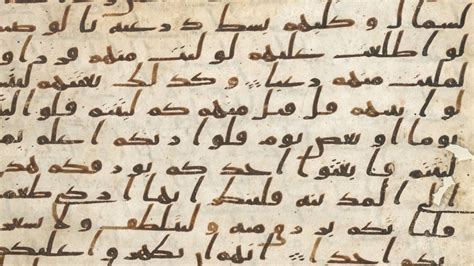 لسمال و كلبهم بسط ذرعيه بالوصيد
لو اطلعت عليهم لوليت منهم فر
لملئت منهم رعبا و كذلك بعثنهم
لوا بينهم قال قائل منهم كم لبثتم قالوا
يوما او بعض يوم قالوا ربكم اعلم بما
لبثتم فابعثوا احدكم بورقكم هذه
الى المدينة فلينظر ايها ازكى طعاما
فلياتكم برزق منه و ليتلطف و لا يشعر
بكم احدا انهم ان يظهروا عليكم